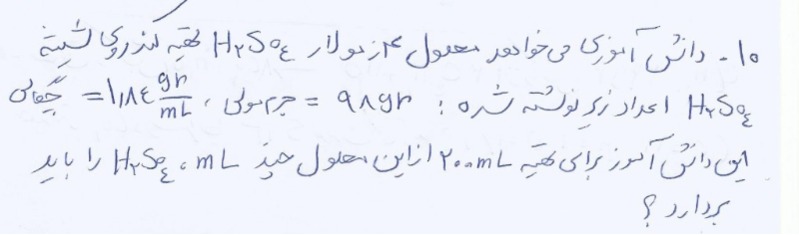 ۱۰- دانش آموزی می‌خواهد محلول ۰٫۴ مولار H₂SO₄ تهیه کند روی شیشه
H₂SO₄ اعداد زیر نوشته شده : ۹۸gr = جرم مولی ، ۱,۸٤ gr/mL = چگالی
این دانش آموز برای تهیه ۲۰۰mL از این محلول چند mL ، H₂SO₄ را باید
بردارد ؟